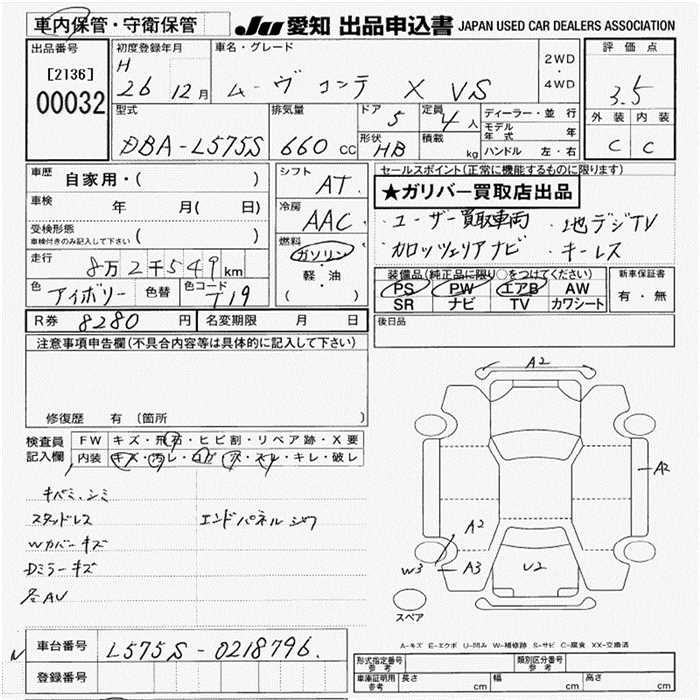 車内保管・守衛保管
JU 愛知 出品申込書 JAPAN USED CAR DEALERS ASSOCIATION
出品番号
[2136]
00032
初度登録年月
H
26 12月
車名・グレード
ムーヴ コンテ X VS
2WD
・
4WD
評価点
3.5
外装 内装
C C
型式
DBA-L575S
排気量
660 CC
ドア
5
定員
4人
形状
HB
積載
kg
ディーラー・並行
モデル
年式 年
ハンドル 左・右
車歴
自家用・( )
車検
年 月( 日)
受検形態
車検付きのみ記入して下さい ( )
走行
8万2千549km
色
アイボリー
色替
色コード
T19
シフト
AT
冷房
AAC
燃料
ガソリン
・
軽・油
( )
セールスポイント(正常に機能するものに限ります)
★ガリバー買取店出品
・ユーザー買取車両 ・地デジTV
・カロッツェリアナビ ・キーレス
装備品(純正品に限り○をつけてください)
PS PW エアB AW
SR ナビ TV カワシート
新車保証書
有・無
R券 8280円
名変期限 月 日
後日品
注意事項申告欄(不具合内容等は具体的に記入して下さい)
修復歴 有 (箇所 )
検査員
記入欄
FW キズ・飛石・ヒビ割・リペア跡・X要
内装 キズ・汚レ・コゲ・穴・スレ・キレ・破レ
キバミ、シミ
スタッドレス
エンドパネルシワ
Wカバーキズ
Dミラーキズ
名AU
A2
A2
A2
W3
A3
U2
スペア
A-キズ E-エクボ U-凹み W-補修跡 S-サビ C-腐食 XX-交換済
車台番号 L575S-0218796.
登録番号
型式指定番号
参考
類別区分番号
参考
車庫証明用
参考
長さ cm
幅 cm
高さ cm